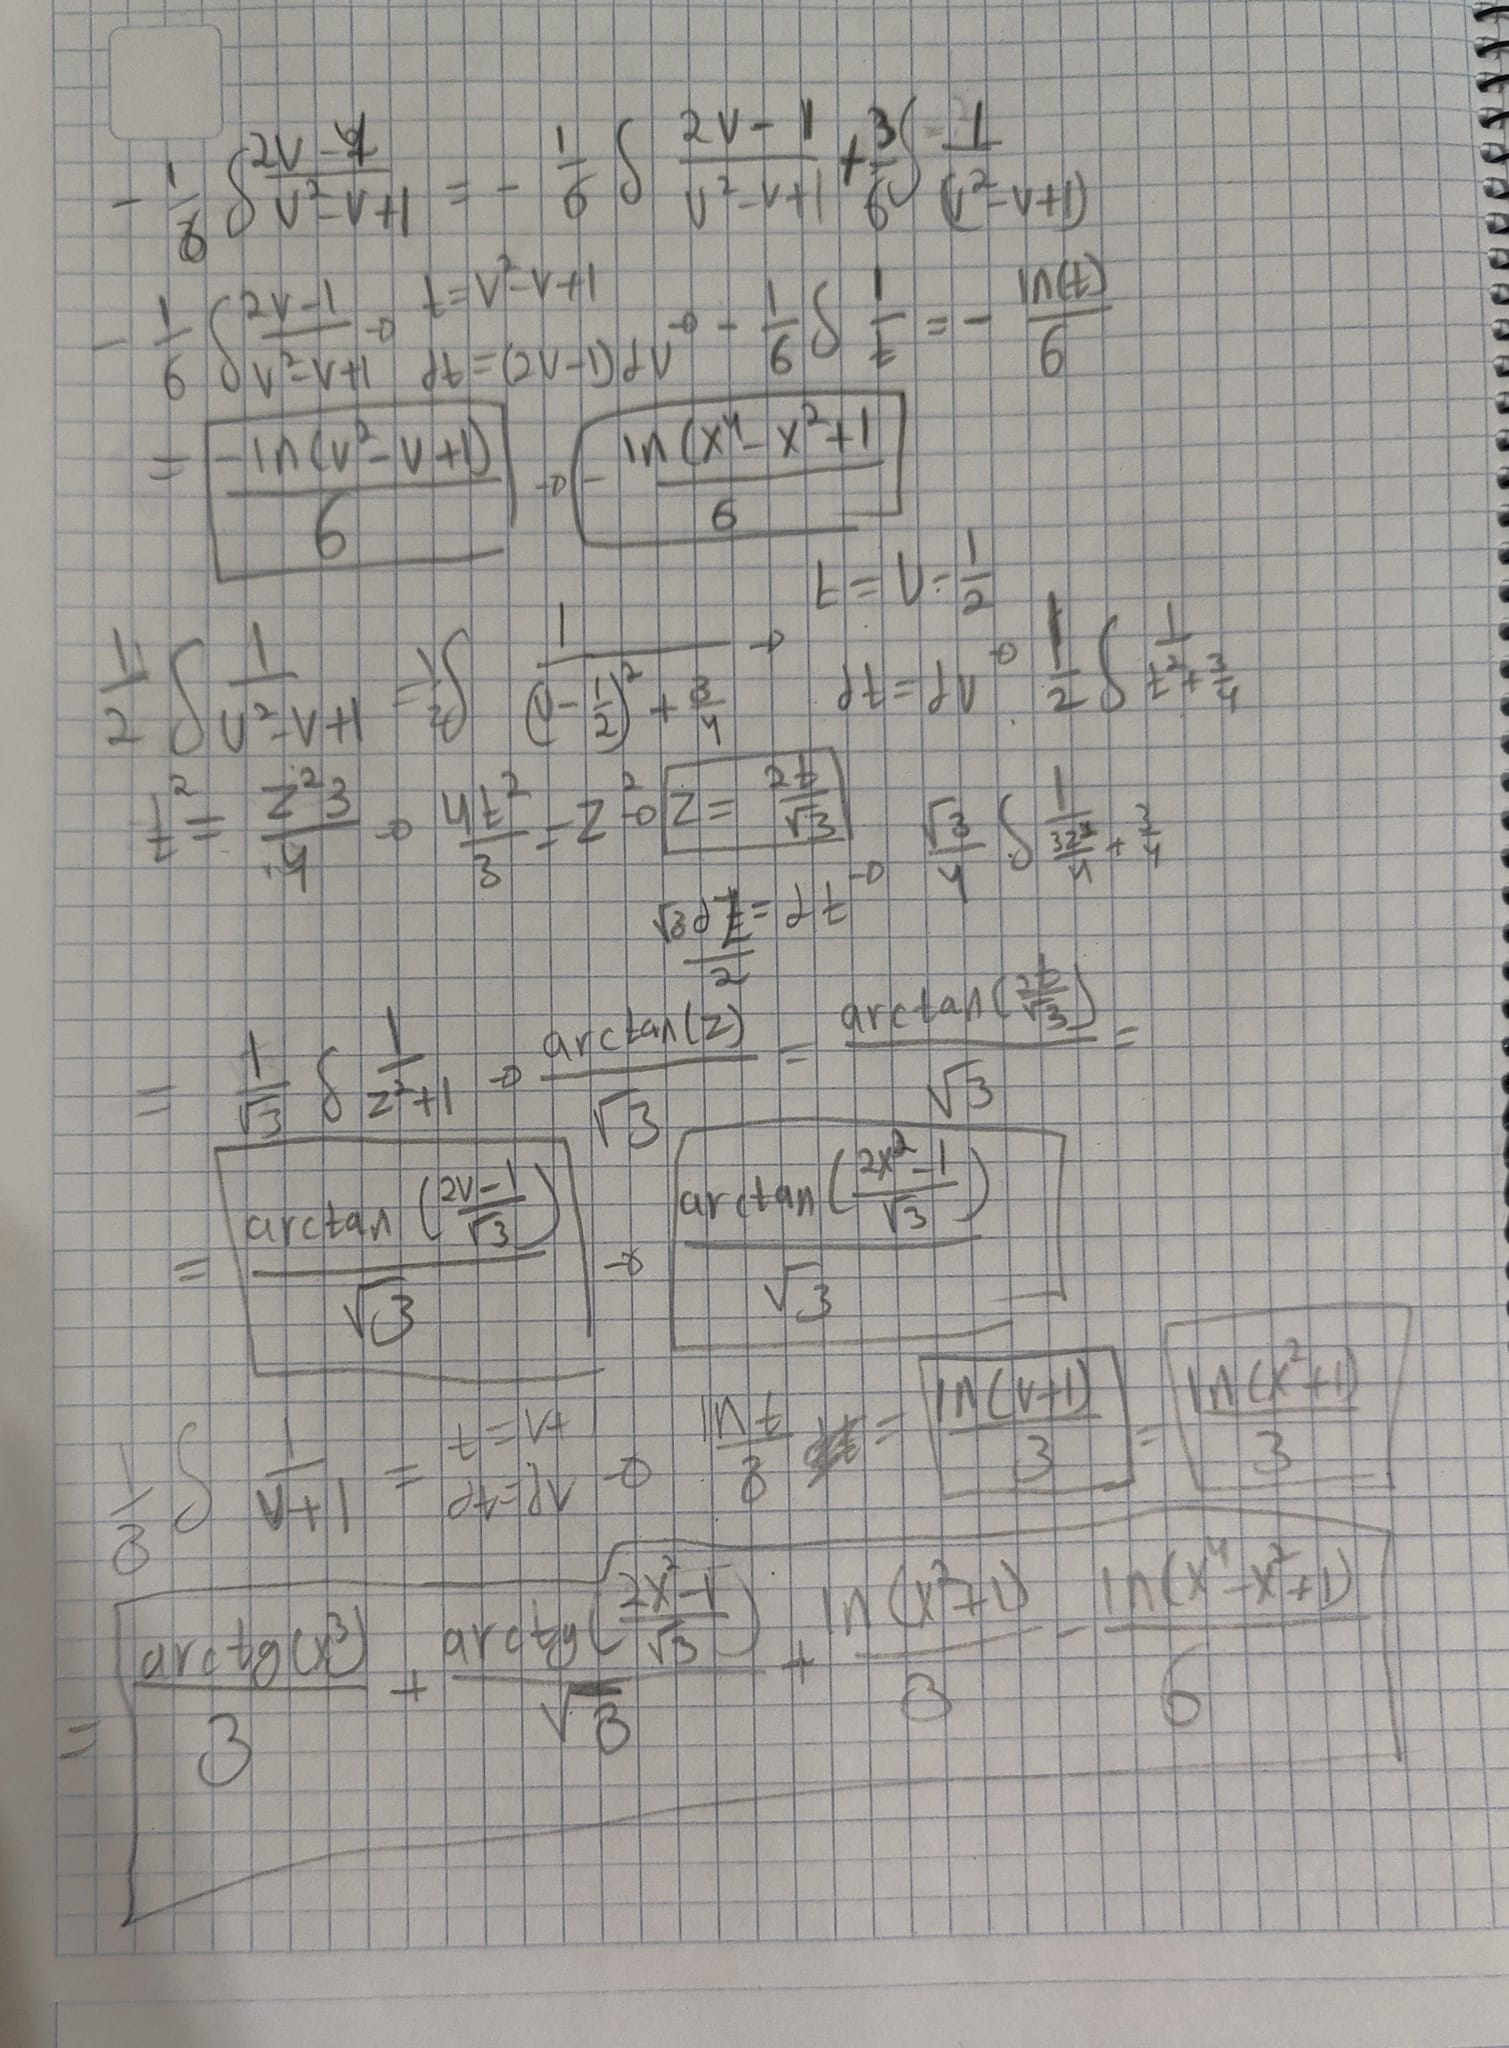 - 1/6 ∫ 2v-4/v²-v+1 = - 1/6 ∫ 2v-1/v²-v+1 + 3/6 ∫ 1/(v²-v+1)
- 1/6 ∫ 2v-1/v²-v+1 → t=v²-v+1 dt=(2v-1)dv → - 1/6 ∫ 1/t = - ln(t)/6
= -ln(v²-v+1)/6 → - ln(x⁴-x²+1/6
1/2 ∫ 1/v²-v+1 = 1/2 ∫ 1/(v-1/2)²+3/4 → t=v-1/2 dt=dv → 1/2 ∫ 1/t²+3/4
t² = z²3/4 → 4t²/3 = z² → z = 2t/√3 √3dz/2 = dt → √3/4 ∫ 1/3z²/4 + 3/4
= 1/√3 ∫ 1/z²+1 → arctan(z)/√3 = arctan(2t/√3)/√3 =
= arctan(2v-1/√3)/√3 → arctan(2x²-1/√3)/√3
1/3 ∫ 1/v+1 = t=v+1 dt=dv → ln t/3 = ln(v+1)/3 = ln(x²+1)/3
= arctg(x³)/3 + arctg(2x²-1/√3)/√3 + ln(x²+1)/3 - ln(x⁴-x²+1)/6